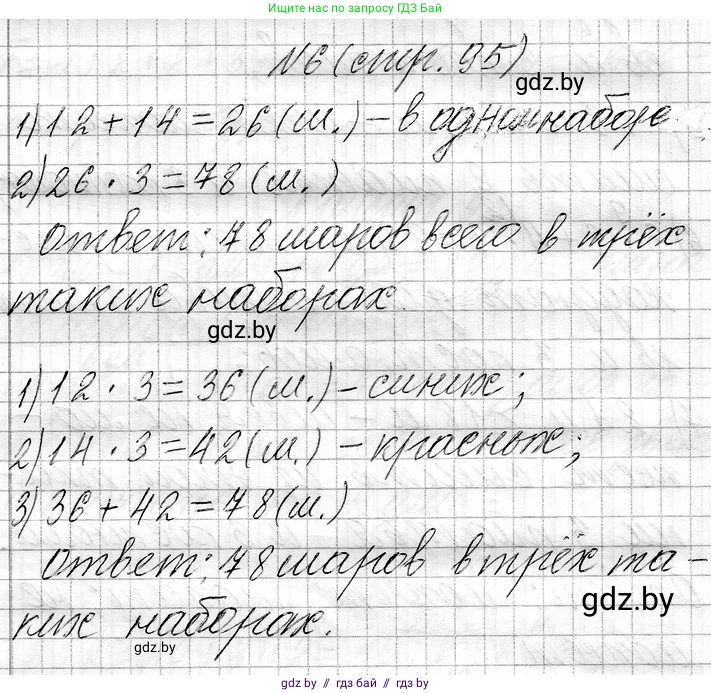 Ищите нас по запросу ГДЗ Бай
№6 (стр. 95)
gdz.by
1) 12 + 14 = 26 (ш.) – в одном наборе
2) 26 · 3 = 78 (ш.)
Ответ: 78 шаров всего в трёх
таких наборах.
gdz.by
1) 12 · 3 = 36 (ш.) – синих;
2) 14 · 3 = 42 (ш.) – красных;
3) 36 + 42 = 78 (ш.)
Ответ: 78 шаров в трёх та-
gdz.by
ких наборах.
gdz.by
gdz.by // гдз бай // gdz.by